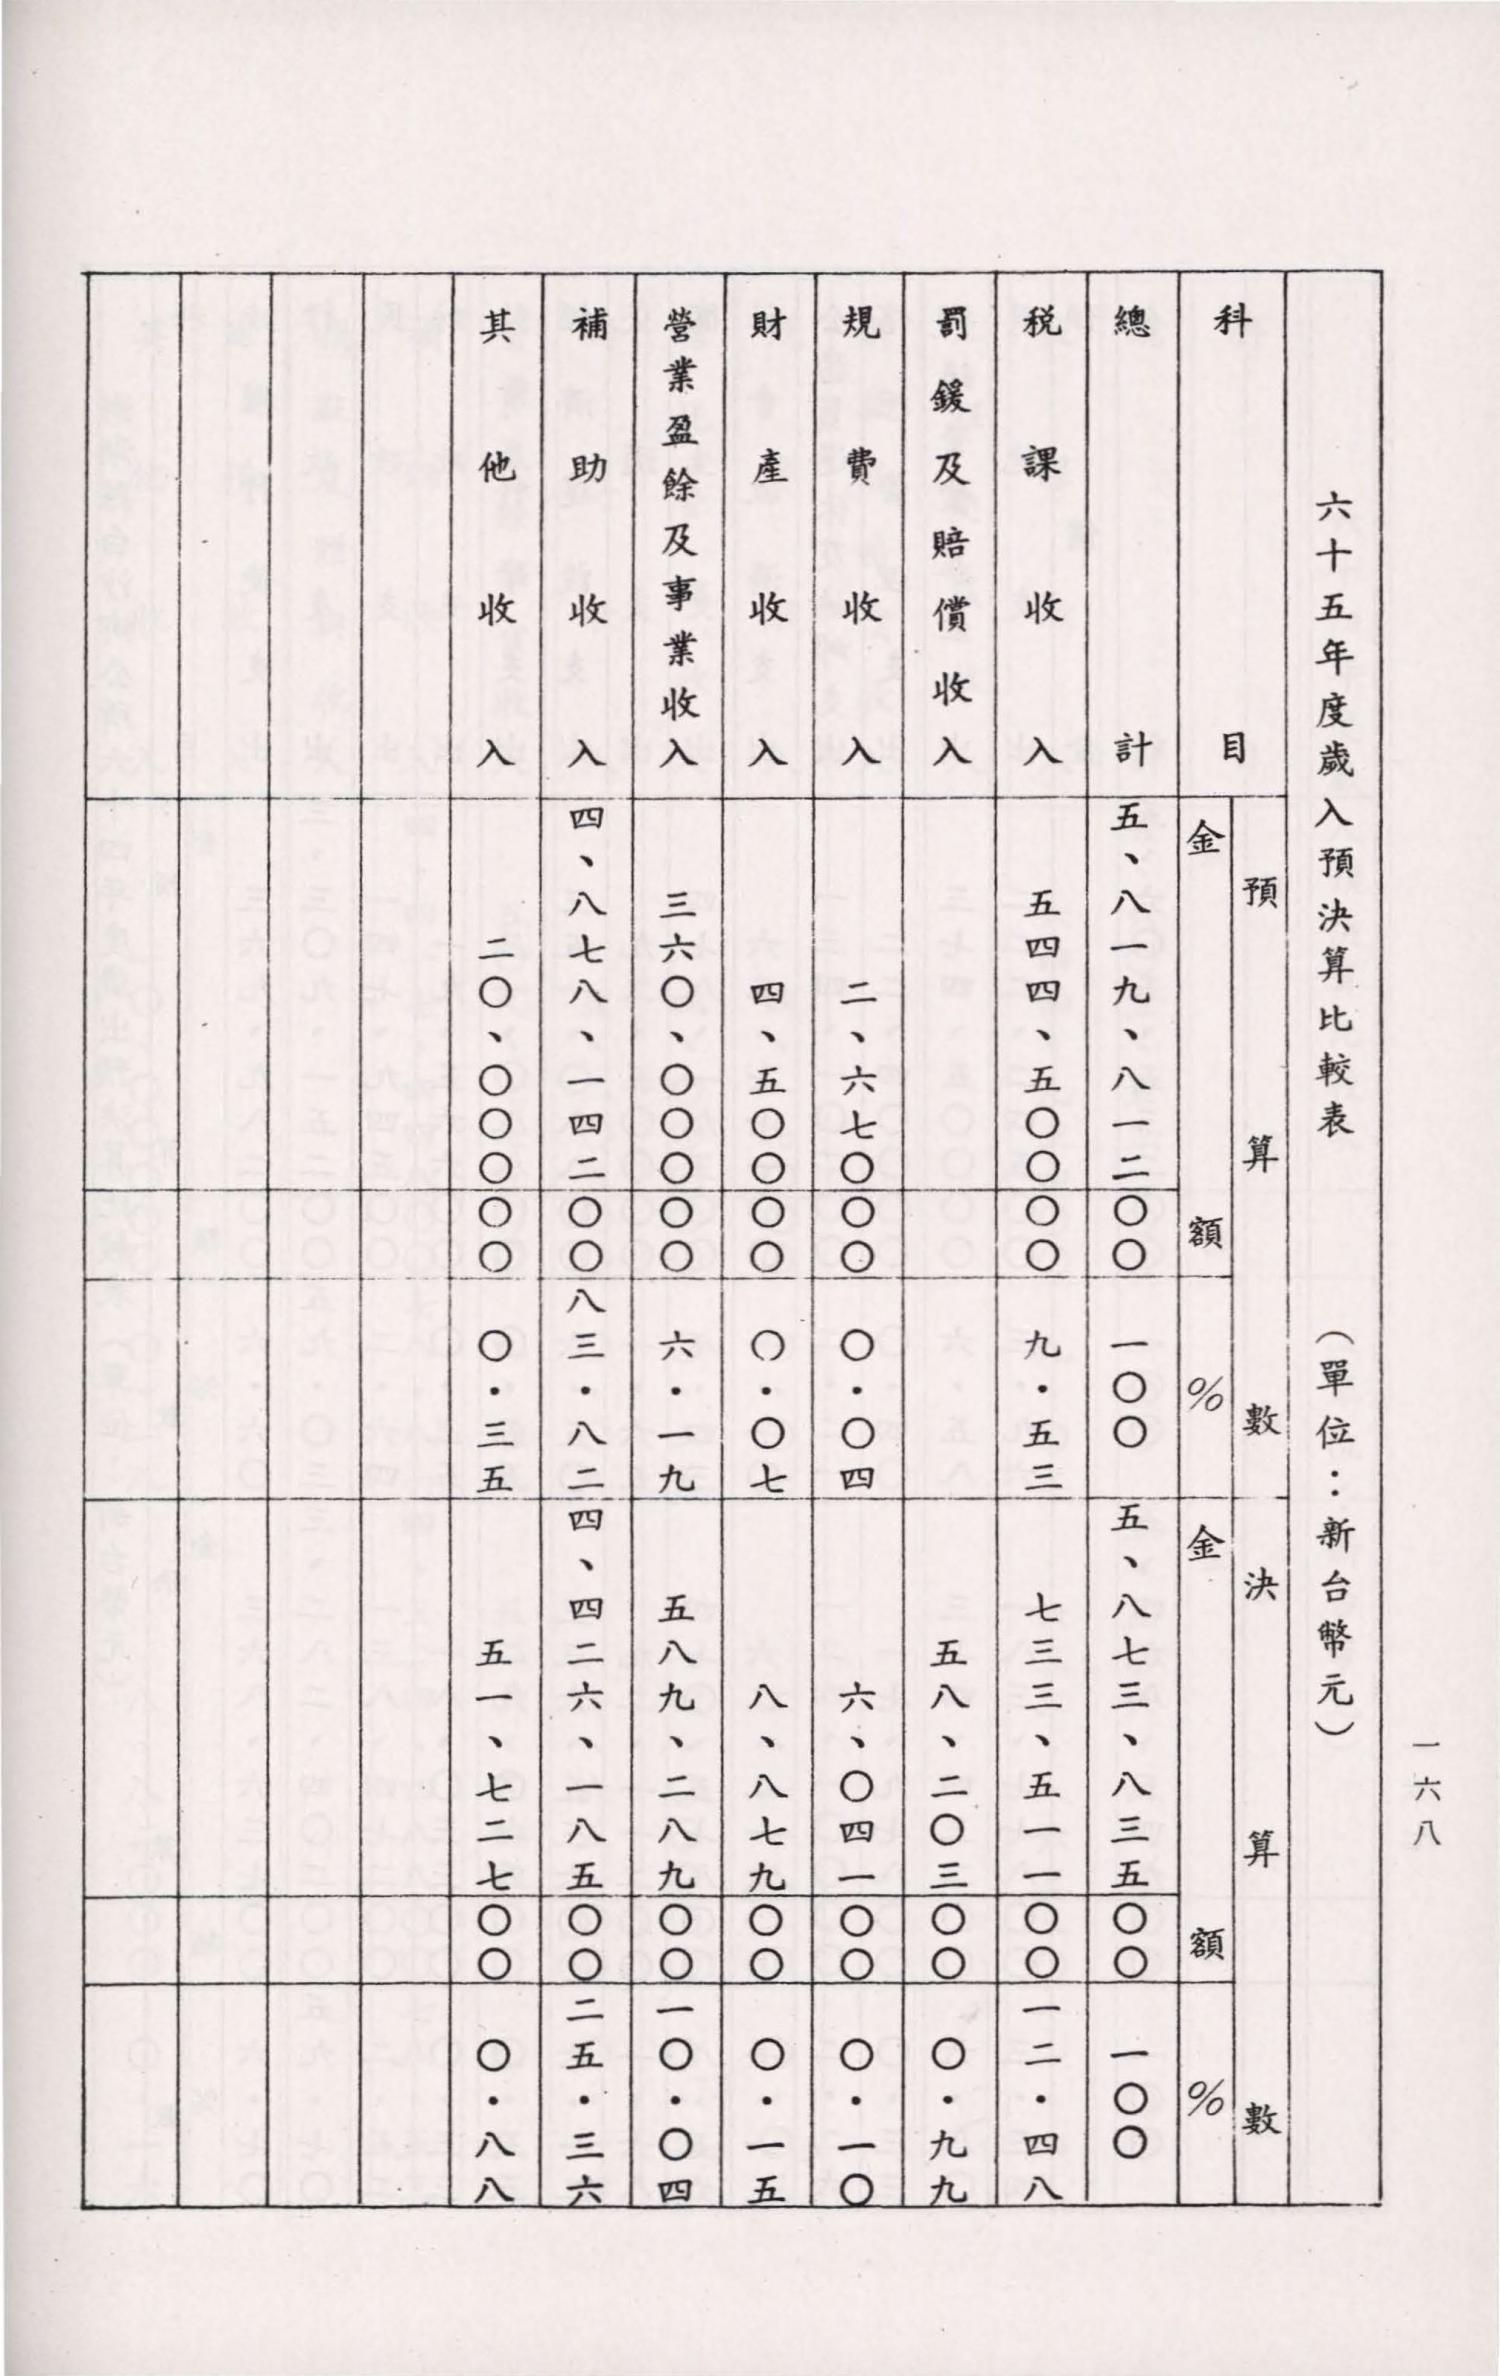 六十五年度歲入預決算比較表 (單位：新台幣元)
科目 預算數 決算數
金額 % 金額 %
總計 五、八一九、八一二〇〇 一〇〇 五、八七三、八三五〇〇 一〇〇
稅課收入 五四四、五〇〇〇〇 九.五三 七三三、五一一〇〇 一二.四八
罰鍰及賠償收入 五八、二〇三〇〇 〇.九九
規費收入 二、六七〇〇〇 〇.〇四 六、〇四一〇〇 〇.一〇
財產收入 四、五〇〇〇〇 〇.〇七 八、八七九〇〇 〇.一五
營業盈餘及事業收入 三六〇、〇〇〇〇〇 六.一九 五八九、二八九〇〇 一〇.〇四
補助收入 四、八七八、一四二〇〇 八三.八二 四、四二六、一八五〇〇 二五.三六
其他收入 二〇、〇〇〇〇〇 〇.三五 五一、七二七〇〇 〇.八八
一六八